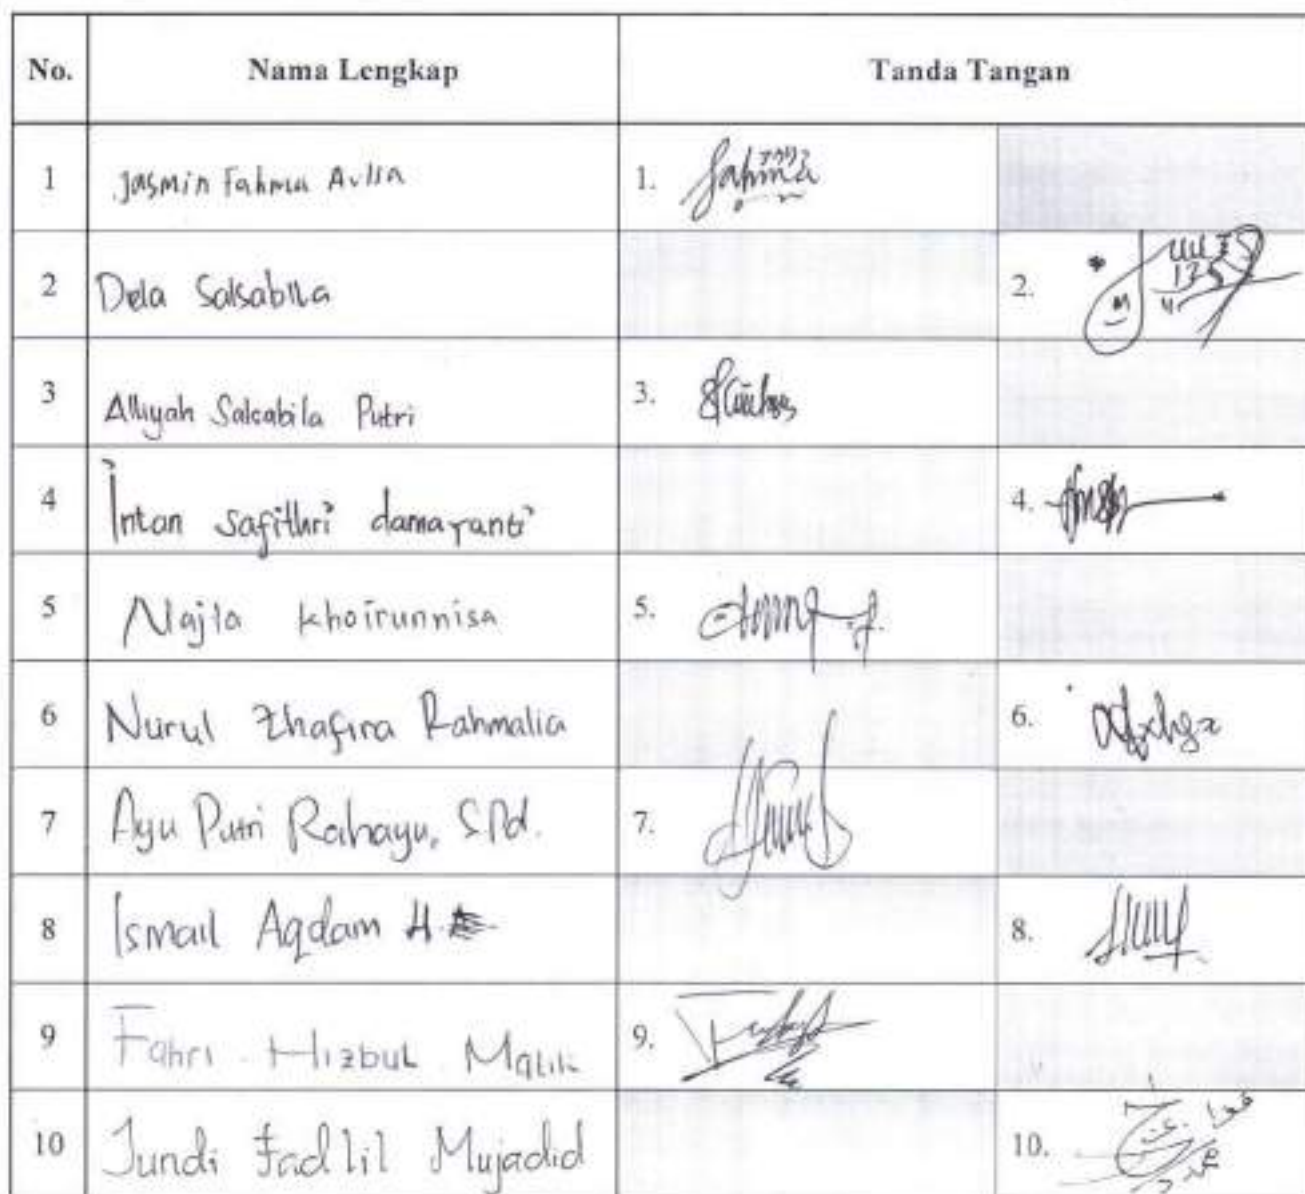 No. Nama Lengkap Tanda Tangan
1 Jasmin Fahma Aulia 1. Fahma
2 Dela Salsabila 2.
3 Alliyah Salsabila Putri 3.
4 Intan safithri damayanti 4.
5 Najla khoirunnisa 5.
6 Nurul Zhafira Rahmalia 6.
7 Ayu Putri Rahayu, S.Pd. 7.
8 Ismail Aqdam H. 8.
9 Fahri Hizbul Malik 9.
10 Jundi Fadlil Mujadid 10.